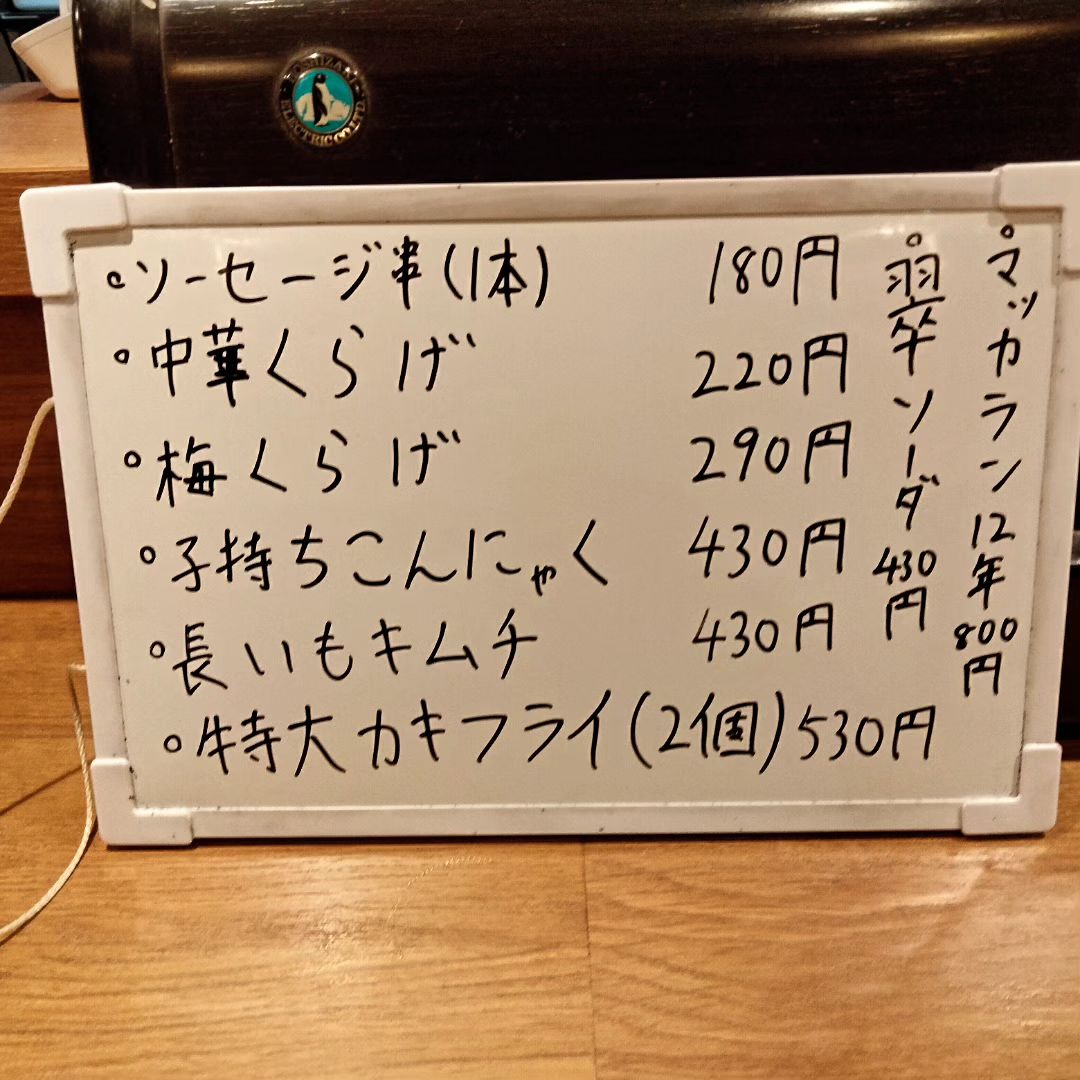 HOSHIZAKI ELECTRIC CO.LTD
ソーセージ串(1本) 180円
中華くらげ 220円
梅くらげ 290円
子持ちこんにゃく 430円
長いもキムチ 430円
特大カキフライ(2個) 530円
マッカラン12年 800円
翠ソーダ 430円